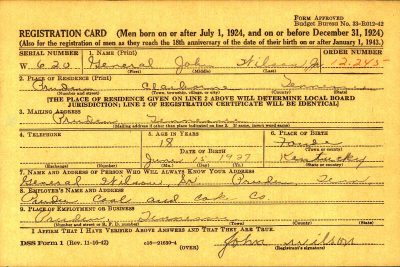 FORM APPROVED
Budget Bureau No. 33-R012-42
REGISTRATION CARD (Men born on or after July 1, 1924, and on or before December 31, 1924)
(Also for the registration of men as they reach the 18th anniversary of the date of their birth on or after January 1, 1943.)
SERIAL NUMBER 1. NAME (Print) ORDER NUMBER
W 620 General John Wilson Jr 12.245
(First) (Middle) (Last)
2. PLACE OF RESIDENCE (Print)
Pruden Claiborne Tenn
(Number and street) (Town, township, village, or city) (County) (State)
[THE PLACE OF RESIDENCE GIVEN ON LINE 2 ABOVE WILL DETERMINE LOCAL BOARD
JURISDICTION; LINE 2 OF REGISTRATION CERTIFICATE WILL BE IDENTICAL]
3. MAILING ADDRESS
Pruden Tennessee
(Mailing address if other than place indicated on line 2. If same, insert word same)
4. TELEPHONE 5. AGE IN YEARS 6. PLACE OF BIRTH
18
DATE OF BIRTH (Town or county)
June 15 Kentucky
(Exchange) (Number) (Mo.) (Day) (Yr.) (State or country)
7. NAME AND ADDRESS OF PERSON WHO WILL ALWAYS KNOW YOUR ADDRESS
General Wilson, Sr Pruden Tenn
8. EMPLOYER'S NAME AND ADDRESS
Pruden Coal and Cok Co
9. PLACE OF EMPLOYMENT OR BUSINESS
Pruden Tennessee
(Number and street or R. F. D. number) (Town) (County) (State)
I AFFIRM THAT I HAVE VERIFIED ABOVE ANSWERS AND THAT THEY ARE TRUE.
DSS Form 1 (Rev. 11-16-42) (OVER) John Wilson
(Registrant's signature)